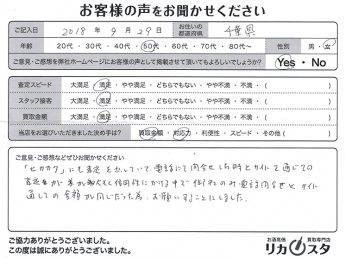 お客様の声をお聞かせください
ご記入日 2018年9月29日 お住いの都道府県 千葉県
年齢 20代・30代・40代・50代・60代・70代・80代〜 性別 男・女
ご意見・ご感想を弊社ホームページにお客様の声として掲載させて頂いてもよろしいでしょうか? Yes・No
査定スピード 大満足・満足・やや満足・どちらでもない・やや不満・不満・( )
スタッフ接客 大満足・満足・やや満足・どちらでもない・やや不満・不満・( )
買取金額 大満足・満足・やや満足・どちらでもない・やや不満・不満・( )
当店をお選びいただきました決め手は? 買取金額・対応力・利便性・スピード・その他( )
ご意見・ご感想などぜひお聞かせください
「ヒカカク」にも査定をだしていて、電話にて問合せした時とサイトを通じての
査定
のみ電話問合せとサイト
通しての金額が同じだった為、お願いすることにしました。
ご協力ありがとうございました。
この度は誠にありがとうございました。
お酒高価買取専門店
リカスタ